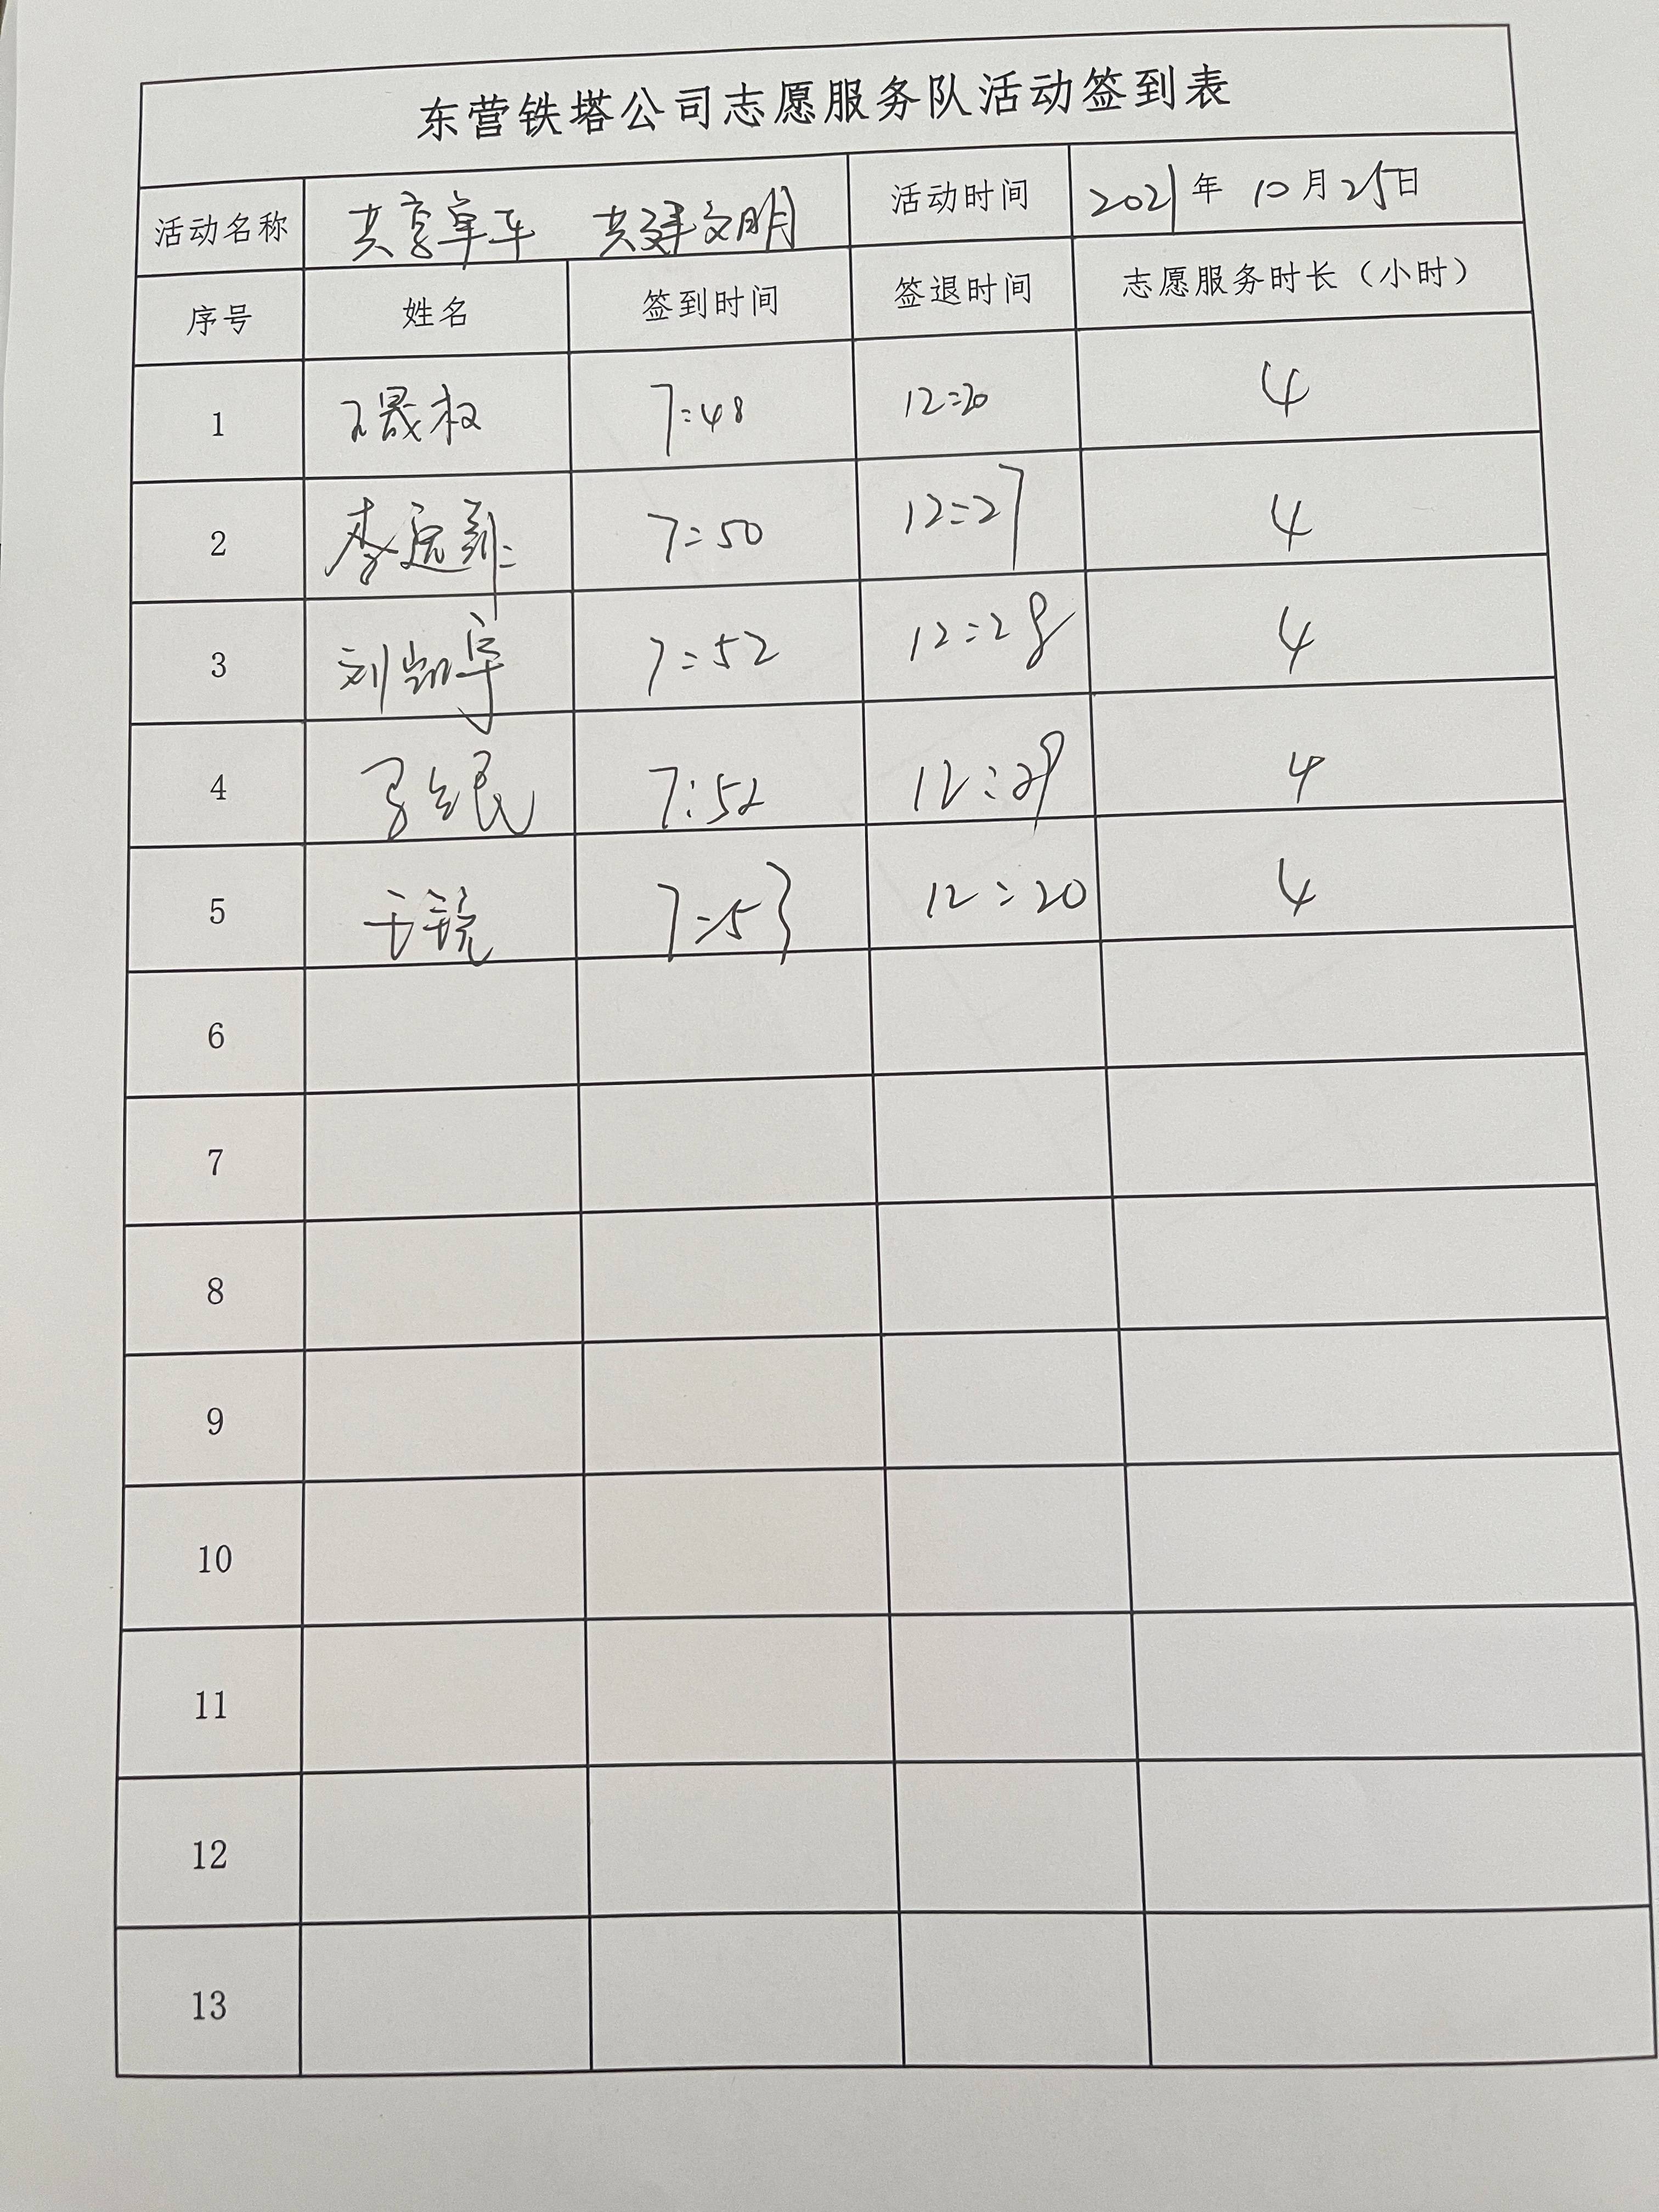 东营铁塔公司志愿服务队活动签到表
活动名称 共享单车 共建文明 活动时间 2021年 10月25日
序号 姓名 签到时间 签退时间 志愿服务时长（小时）
1 王晟权 7:48 12:20 4
2 李 7:50 12:27 4
3 刘凯宇 7:52 12:28 4
4 民 7:52 12:29 4
5 于锐 7:53 12:20 4
6
7
8
9
10
11
12
13